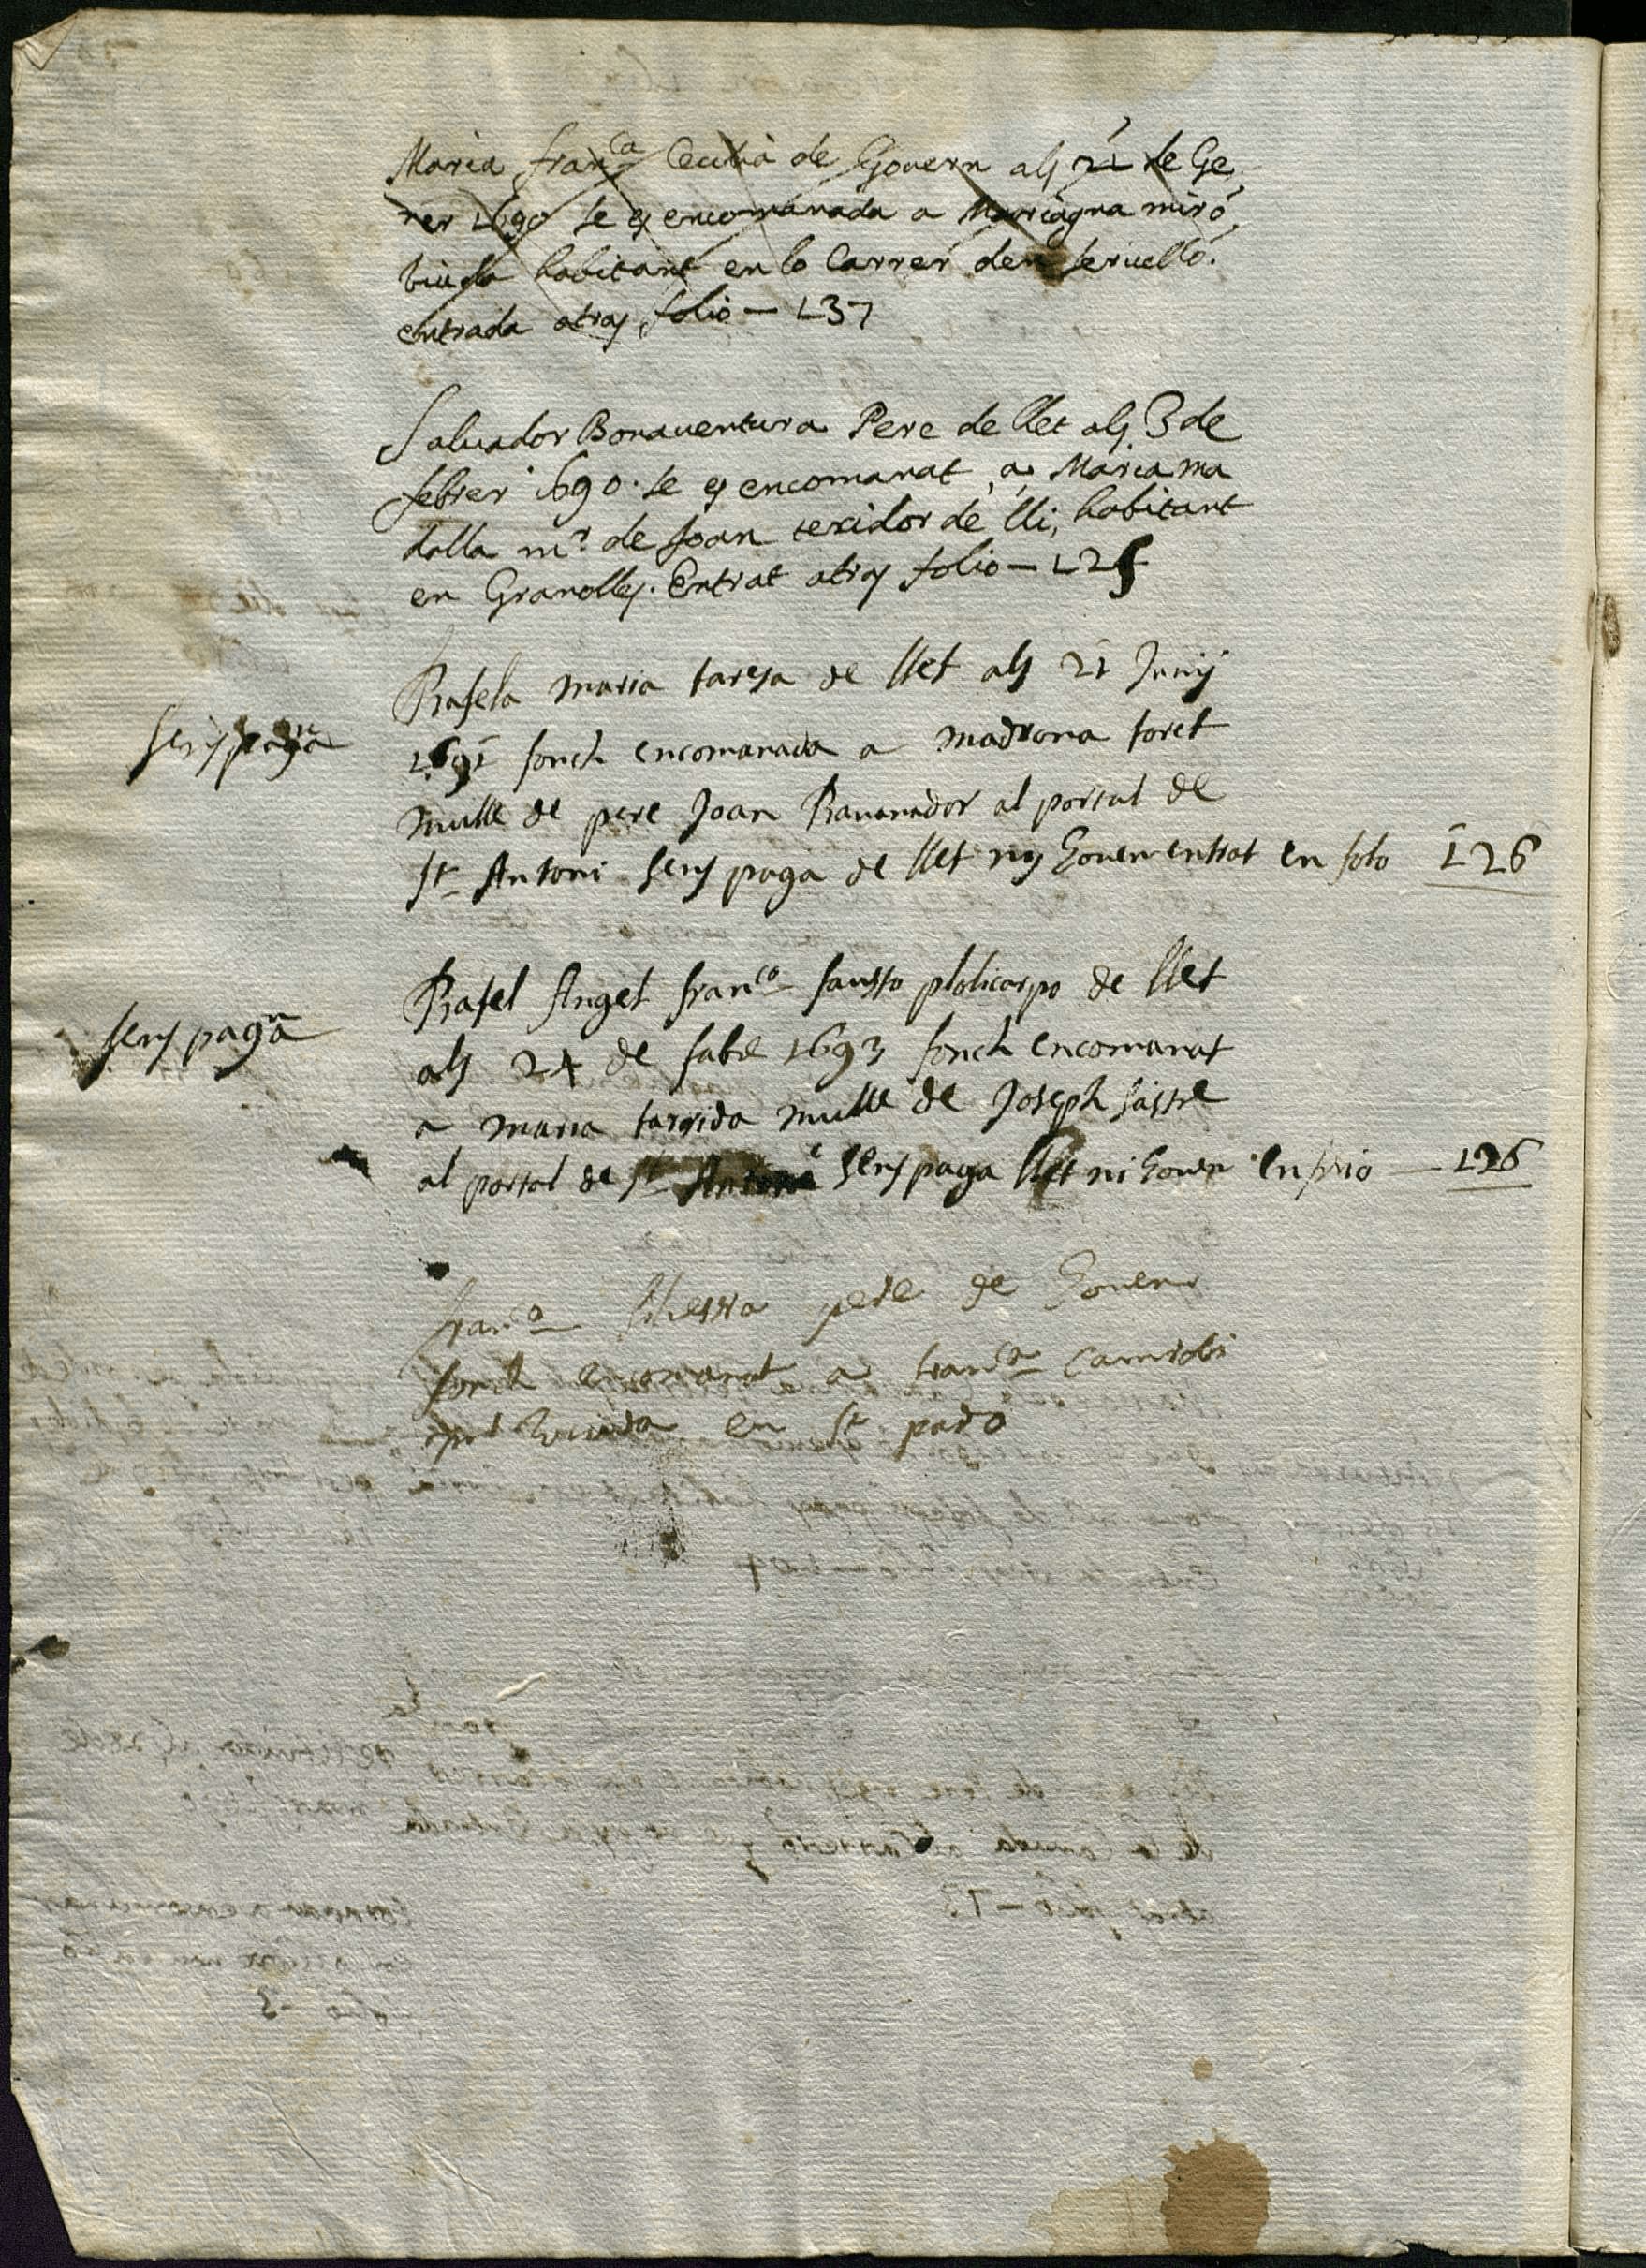 Maria fran.ca Cecilia de Govern als 21 de Ge
ner 1690 se es encomanada a Mariagna miró
viuda habitant en lo Carrer den servelló.
entrada atras folio — 137
Salvador Bonaventura Pere de llet als 3 de
febrer 1690. se es encomanat a Maria ma
dalla m.r de Joan texidor de lli, habitant
en Granollers. Entrat atras folio — 125
Rafela maria taresa de llet als 21 Junij
sens paga
1691 fonch encomanada a madrona foret
mulle de pere Joan Ravanador al portal de
st Antoni sens paga de llet ny Govern entrat en folo 126
Rafel Angel fran.co fausto plolicarpo de llet
sens paga
als 24 de fabe 1693 fonch encomanat
a maria tarrida mulle de Joseph sastre
al portal de st Antoni sens paga llet ni Govern en folio — 126
fran.co pere de Govern
fonch encomanat a
viuda en st